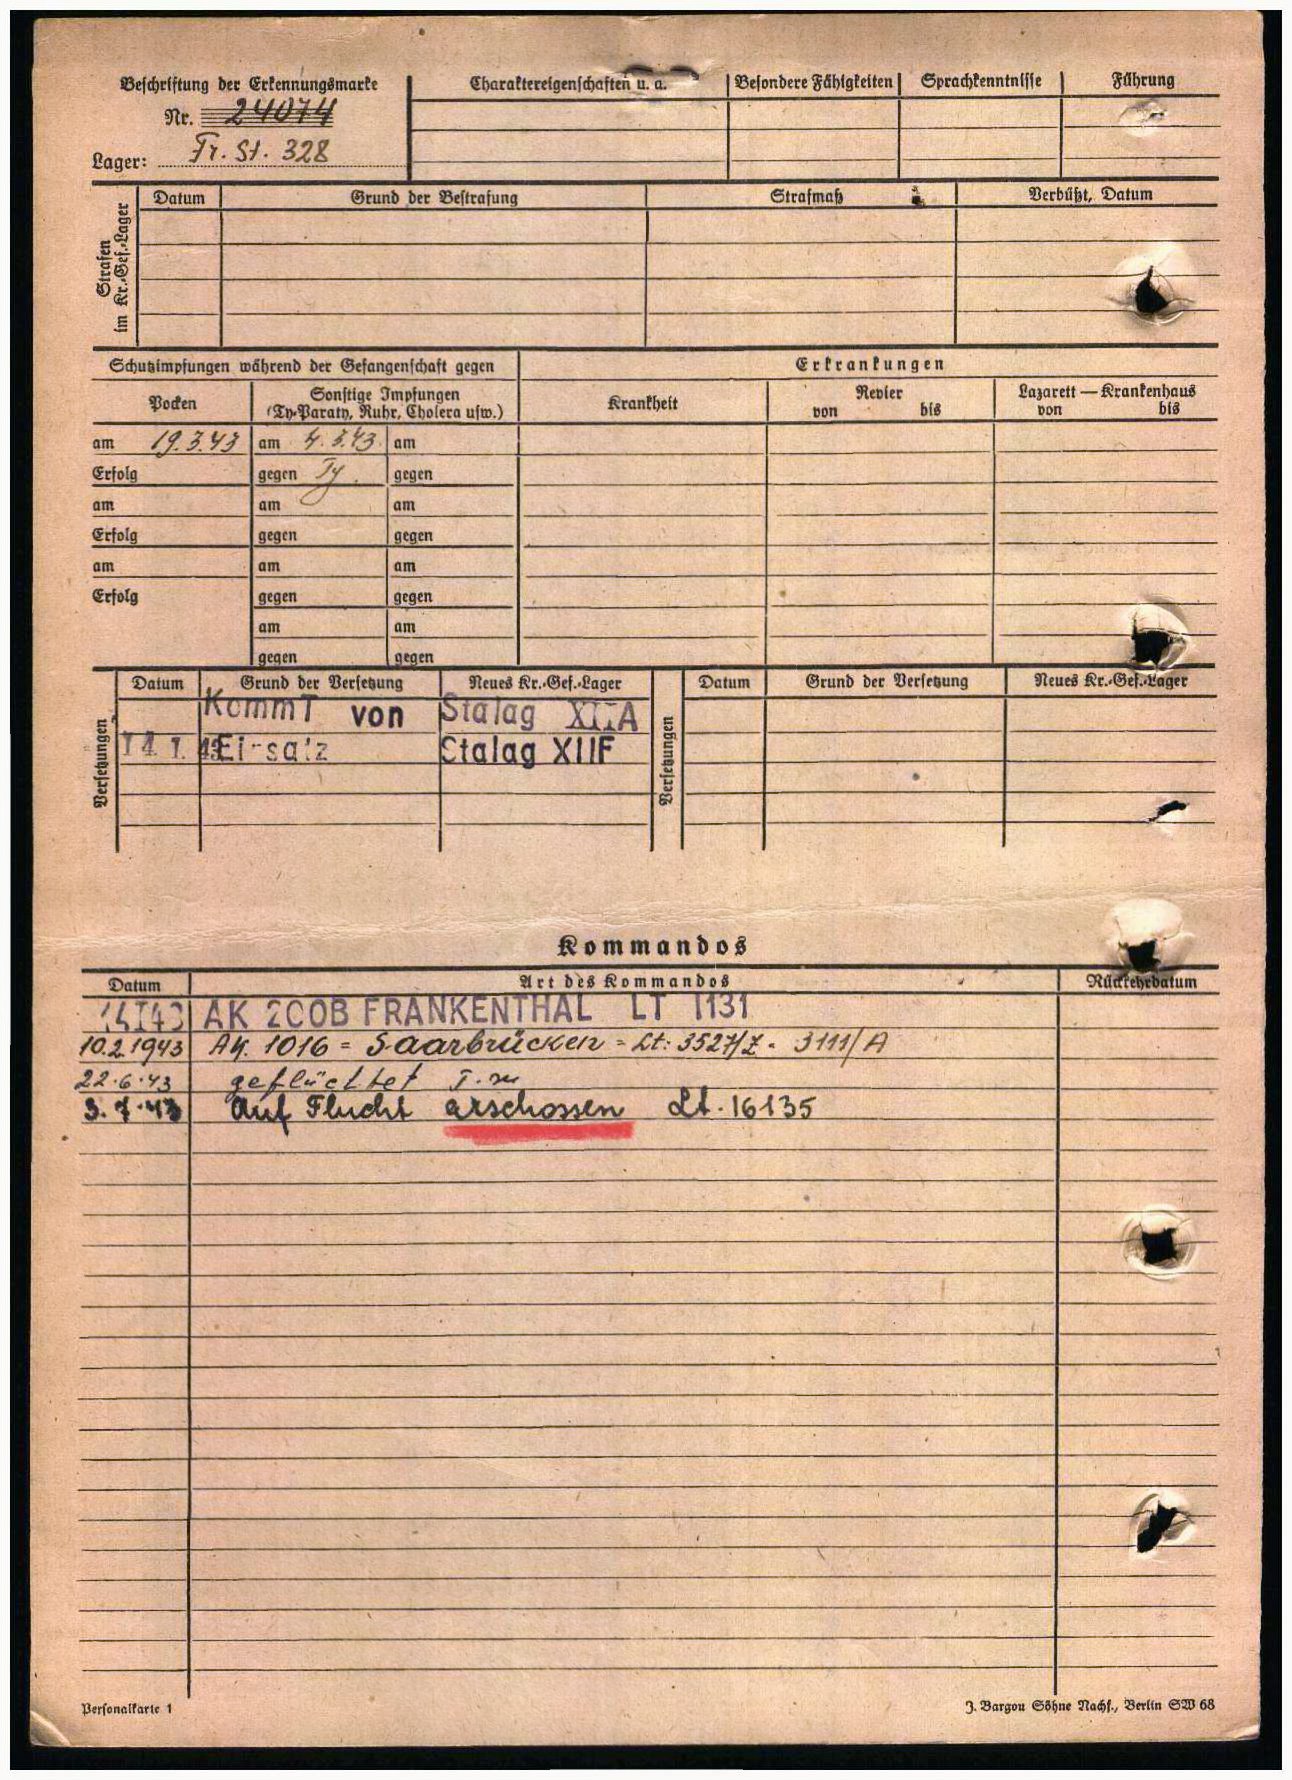 Beschriftung der Erkennungsmarke
Nr. 24074
Lager: Fr. St. 328
Charaktereigenschaften u. a.
Besondere Fähigkeiten
Sprachkenntnisse
Führung
Strafen im Kr.-Gef.-Lager
Datum
Grund der Bestrafung
Strafmaß
Verbüßt, Datum
Schutzimpfungen während der Gefangenschaft gegen
Erkrankungen
Pocken
Sonstige Impfungen
(Ty-Paraty, Ruhr, Cholera usw.)
Krankheit
Revier
von bis
Lazarett — Krankenhaus
von bis
am 19.3.43 am 4.3.43 am
Erfolg gegen Ty. gegen
am am am
Erfolg gegen gegen
am am am
Erfolg gegen gegen
am am
gegen gegen
Versetzungen
Datum Grund der Versetzung Neues Kr.-Gef.-Lager
KommT von Stalag XIIA
14. 1. 43 Einsatz Stalag XIIF
Versetzungen
Datum Grund der Versetzung Neues Kr.-Gef.-Lager
Kommandos
Datum Art des Kommandos Rückkehrdatum
14 I 43 AK 200B FRANKENTHAL LT 1131
10.2.1943 AK. 1016 = Saarbrücken = Lt: 3527/Z. 3111/A
22.6.43 geflüchtet
3.7.43 auf Flucht erschossen Lt. 16135
Personalkarte 1
J. Bargou Söhne Nachf., Berlin SW 68